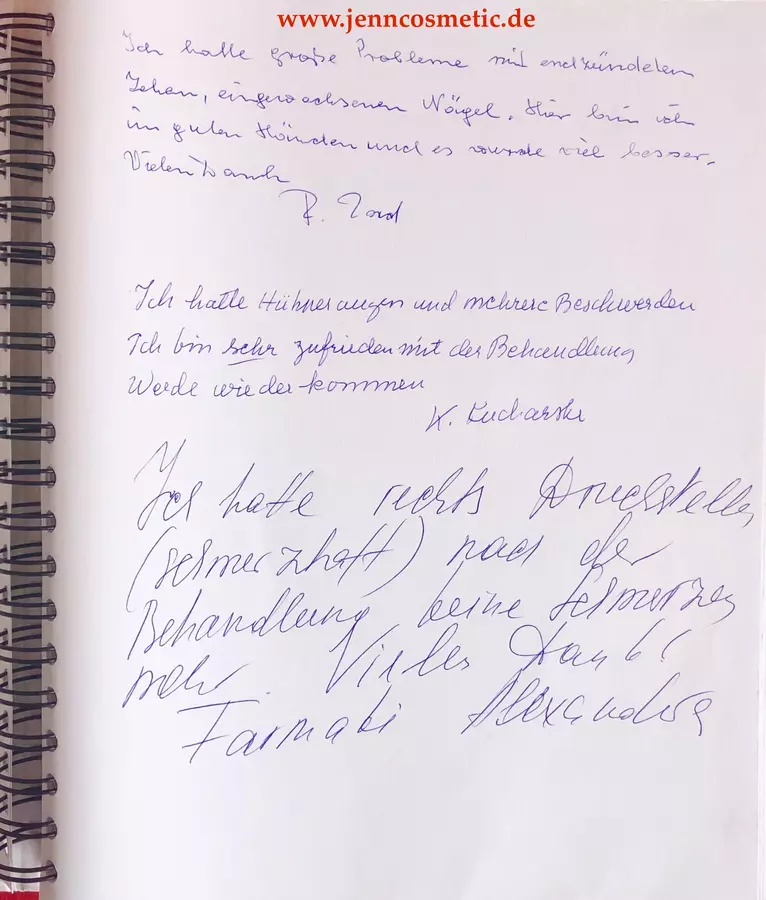 www.jenncosmetic.de
Ich hatte große Probleme mit endzündeten
Zehen, eingewachsenen Nägel. Hier bin ich
in guten Händen und es wurde viel besser.
Vielen Dank
R.
Ich hatte Hühneraugen und mehrere Beschwerden
Ich bin sehr zufrieden mit der Behandlung
Werde wieder kommen
K. Kucharski
Ich hatte rechts Druckstelle
(schmerzhaft) nach der
Behandlung keine Schmerzen
mehr. Vielen Dank!
Farmaki Alexandra